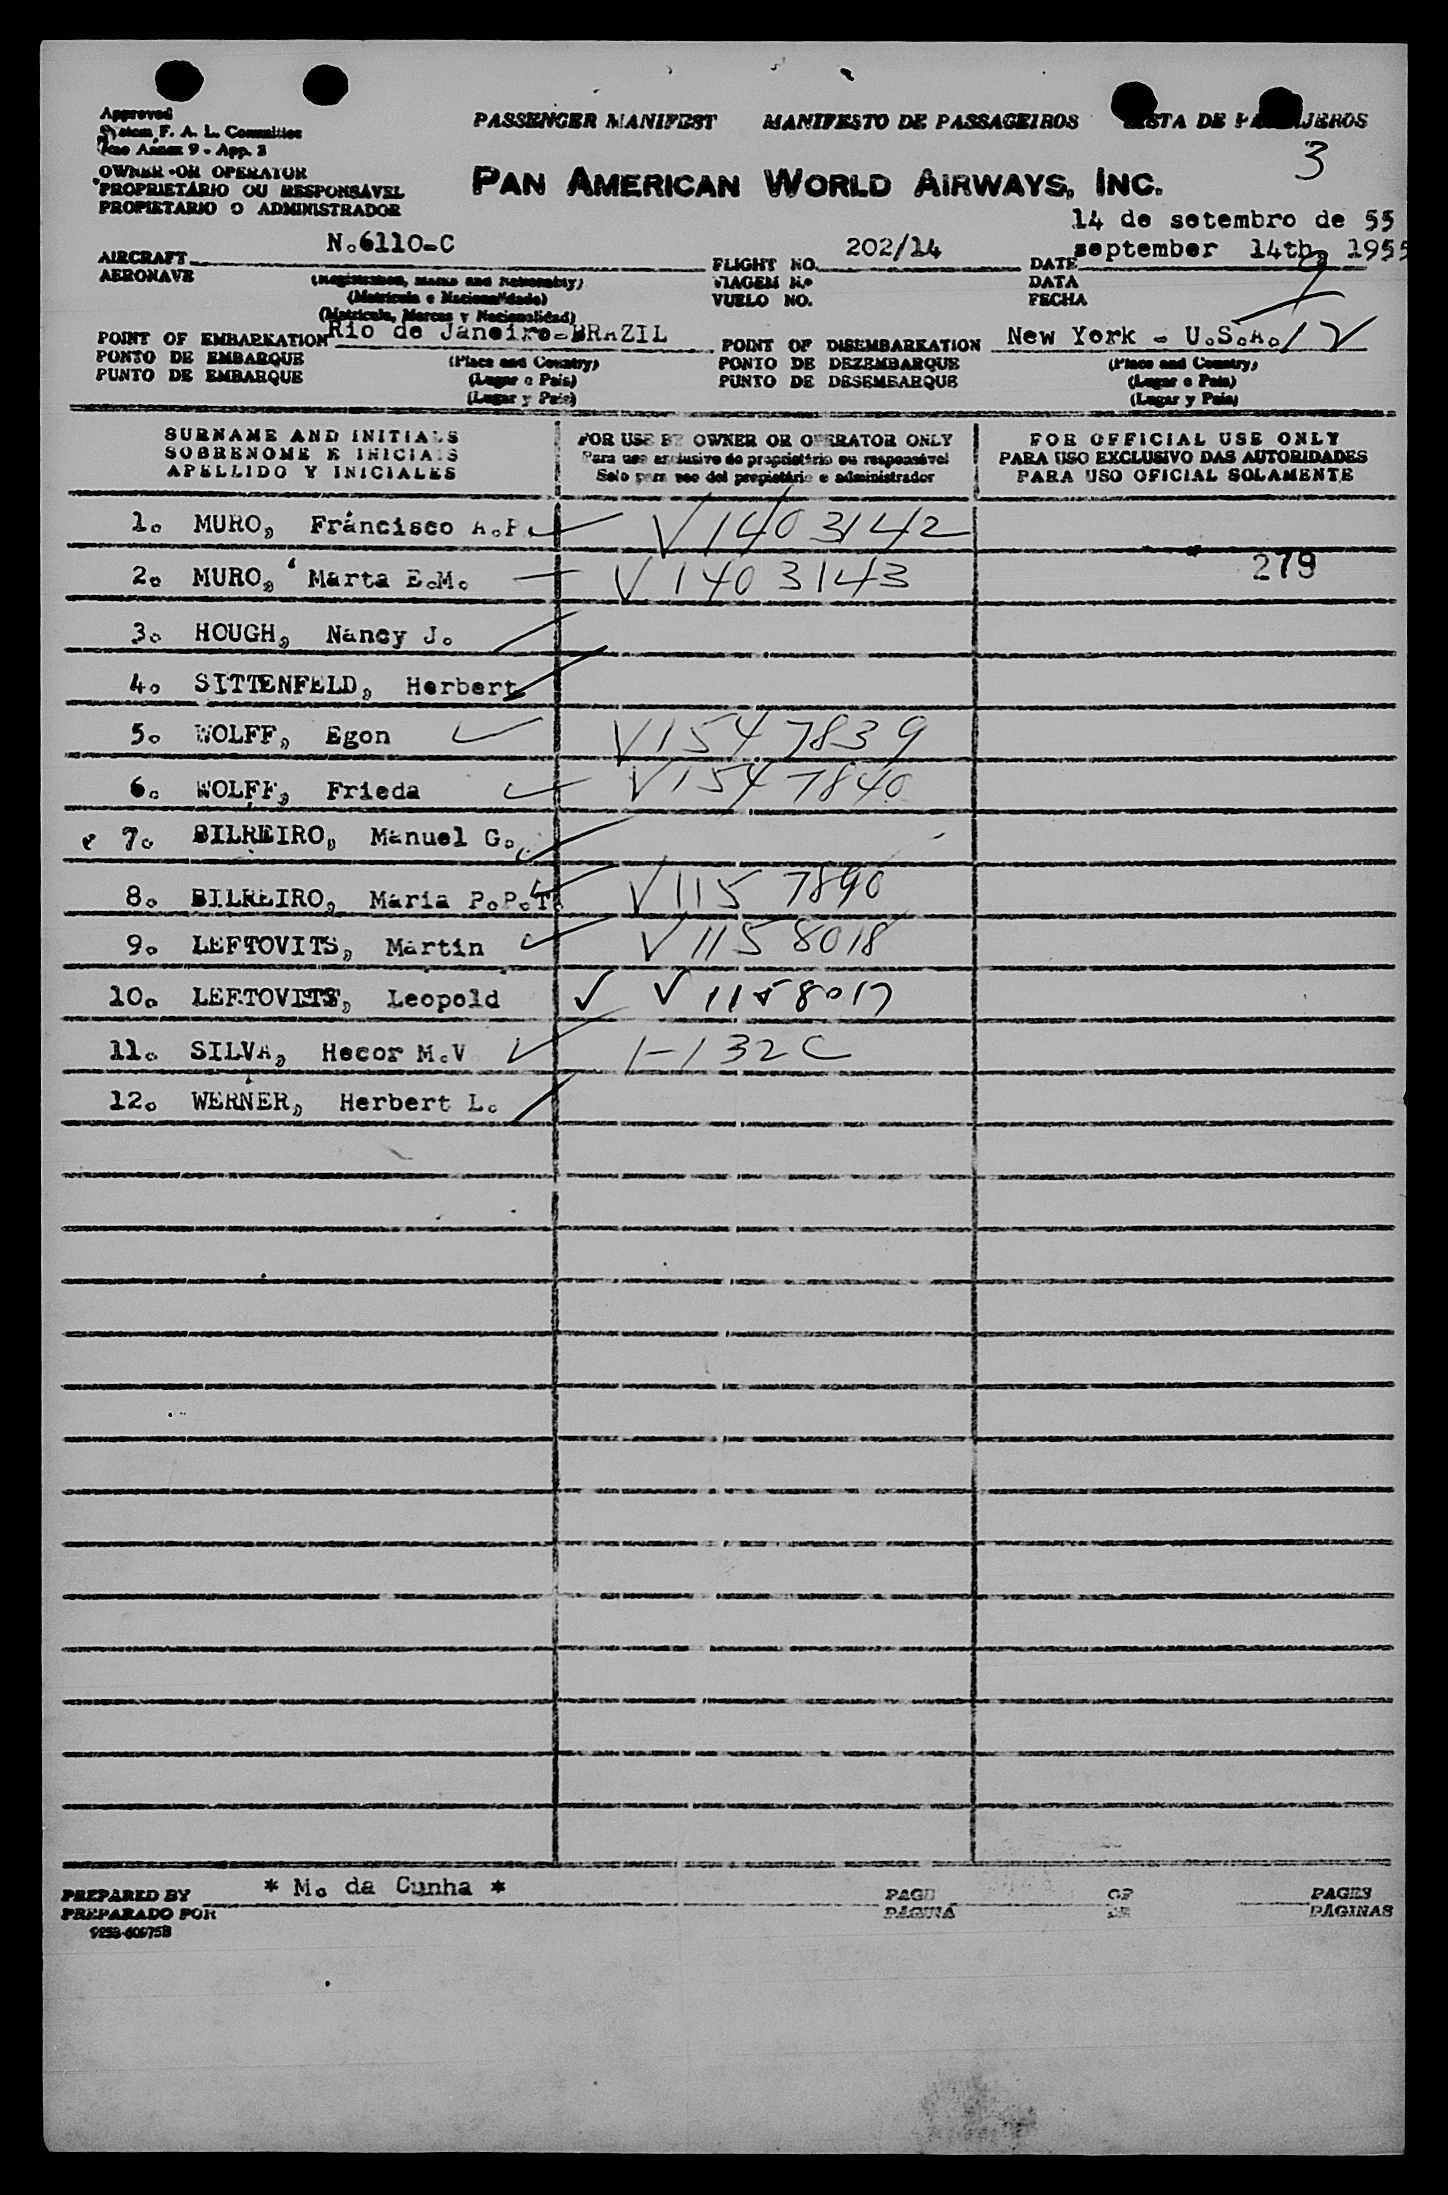 Approved
System F. A. L. Committee
Icao Annex 9 - App. 3
PASSENGER MANIFEST MANIFESTO DE PASSAGEIROS LISTA DE PASAJEROS
3
OWNER OR OPERATOR
PROPRIETÁRIO OU RESPONSÁVEL
PROPIETARIO O ADMINISTRADOR
PAN AMERICAN WORLD AIRWAYS, INC.
14 de setembro de 55
AIRCRAFT N.6110-C FLIGHT NO. 202/14 DATE september 14th, 1955
AERONAVE (Registration, Marks and Nationality) VIAGEM N.º DATA
(Matricula e Nacionalidade) VUELO NO. FECHA
(Matricula, Marcas y Nacionalidad)
POINT OF EMBARKATION Rio de Janeiro-BRAZIL POINT OF DISEMBARKATION New York - U.S.A.
PONTO DE EMBARQUE (Place and Country) PONTO DE DEZEMBARQUE (Place and Country)
PUNTO DE EMBARQUE (Lugar e Pais) PUNTO DE DESEMBARQUE (Lugar e Pais)
(Lugar y Pais) (Lugar y Pais)
SURNAME AND INITIALS FOR USE BY OWNER OR OPERATOR ONLY FOR OFFICIAL USE ONLY
SOBRENOME E INICIAIS Para uso exclusivo do proprietário ou responsável PARA USO EXCLUSIVO DAS AUTORIDADES
APELLIDO Y INICIALES Solo para uso del propietário e administrador PARA USO OFICIAL SOLAMENTE
1. MURO, Fráncisco A.P. V1403142
2. MURO, Marta E.M. V1403143 279
3. HOUGH, Nancy J.
4. SITTENFELD, Herbert
5. WOLFF, Egon V1547839
6. WOLFF, Frieda V1547840
7. BILREIRO, Manuel G.
8. BILREIRO, Maria P.P.T. V1157890
9. LEFTOVITS, Martin V1158018
10. LEFTOVITS, Leopold V1158017
11. SILVA, Hecor M.V 1-132C
12. WERNER, Herbert L.
PREPARED BY * M. da Cunha * PAGE OF PAGES
PREPARADO POR PÁGINA DE PÁGINAS